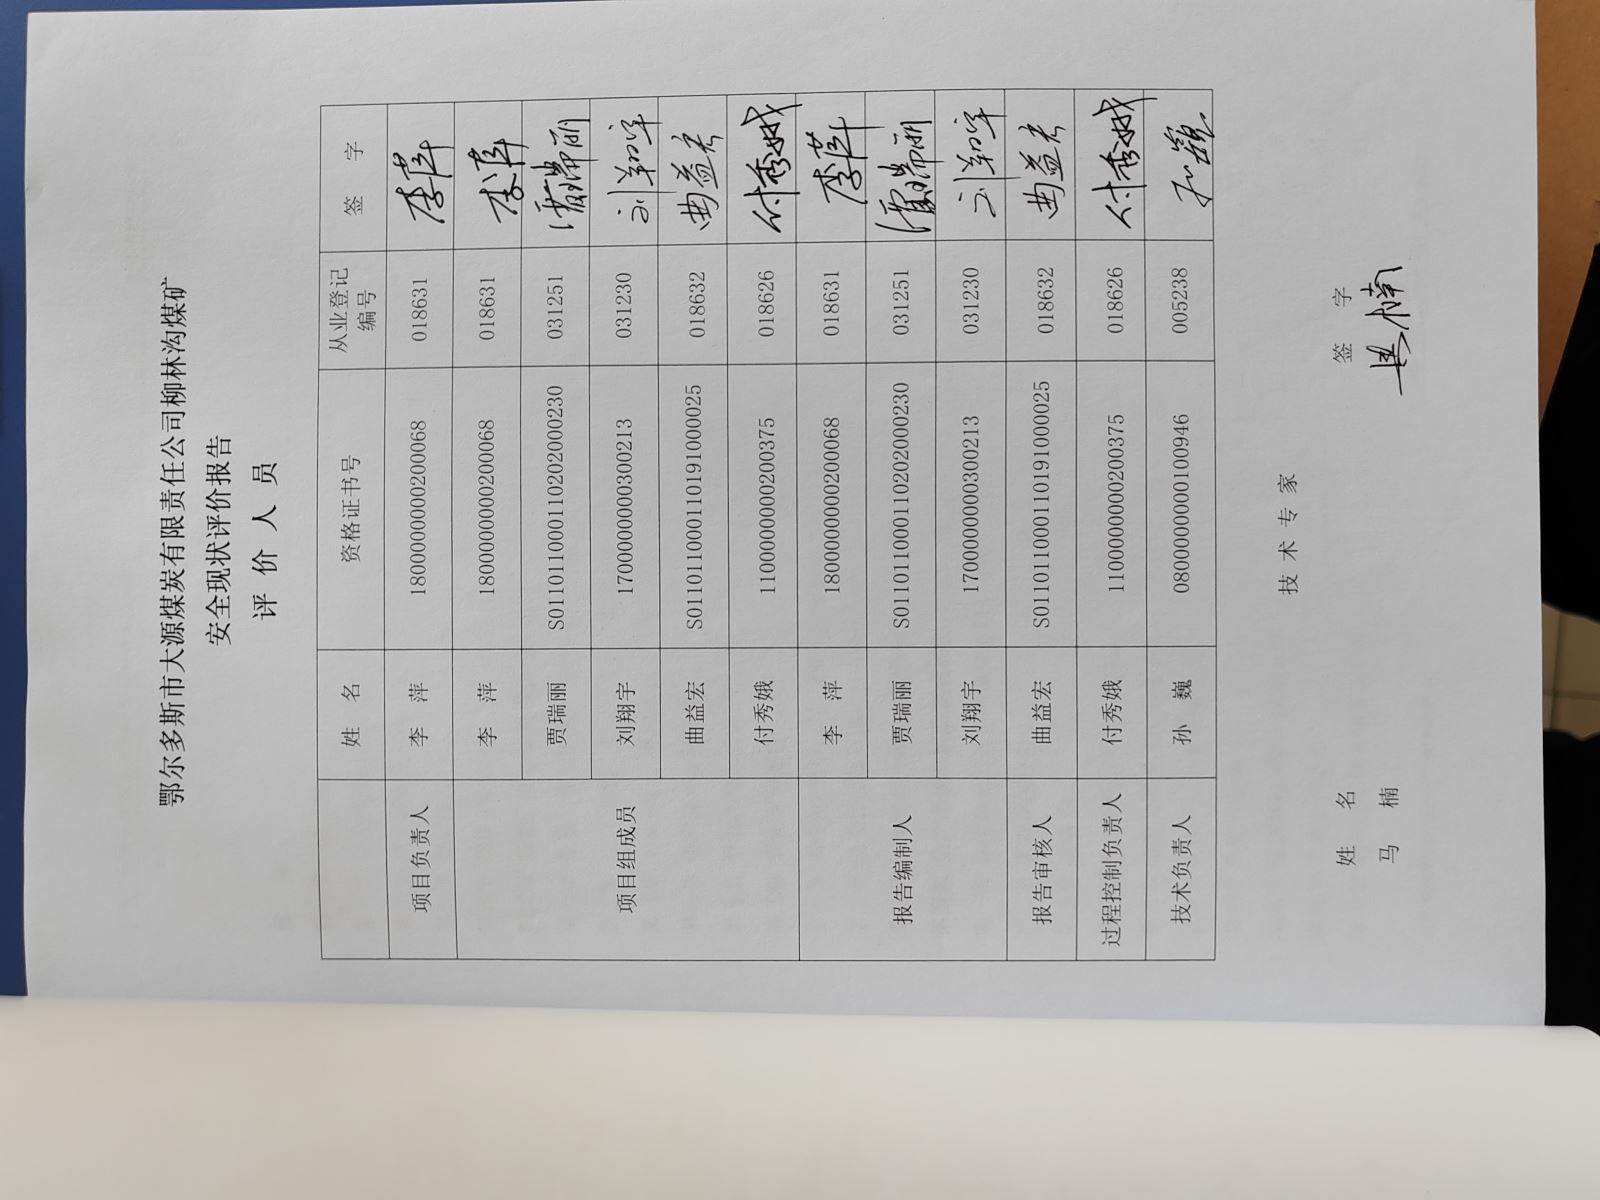 鄂尔多斯市大源煤炭有限责任公司柳林沟煤矿
安全现状评价报告
评 价 人 员
姓 名 资格证书号 从业登记编号 签 字
项目负责人 李 萍 1800000000200068 018631 李萍
项目组成员 李 萍 1800000000200068 018631 李萍
贾瑞丽 S011011000110202000230 031251 贾瑞丽
刘翔宇 1700000000300213 031230 刘翔宇
曲益宏 S011011000110191000025 018632 曲益宏
付秀娥 1100000000200375 018626 付秀娥
报告编制人 李 萍 1800000000200068 018631 李萍
贾瑞丽 S011011000110202000230 031251 贾瑞丽
刘翔宇 1700000000300213 031230 刘翔宇
报告审核人 曲益宏 S011011000110191000025 018632 曲益宏
过程控制负责人 付秀娥 1100000000200375 018626 付秀娥
技术负责人 孙 巍 0800000000100946 005238 孙巍
技 术 专 家
姓 名 签 字
马 楠 马楠